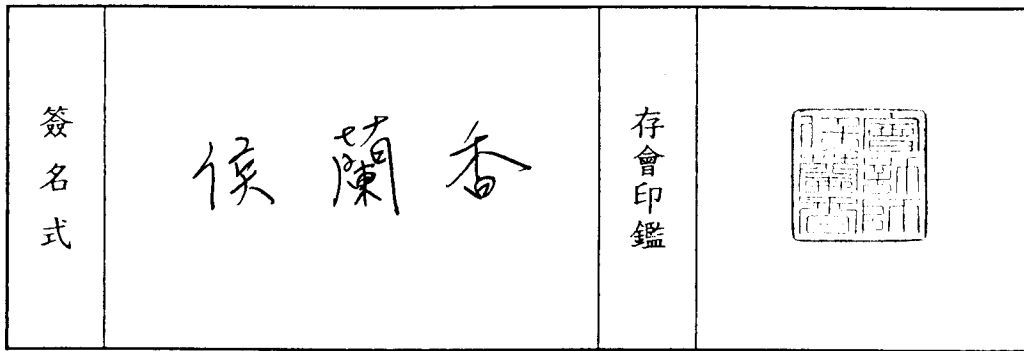 簽名式
侯蘭香
存會印鑑